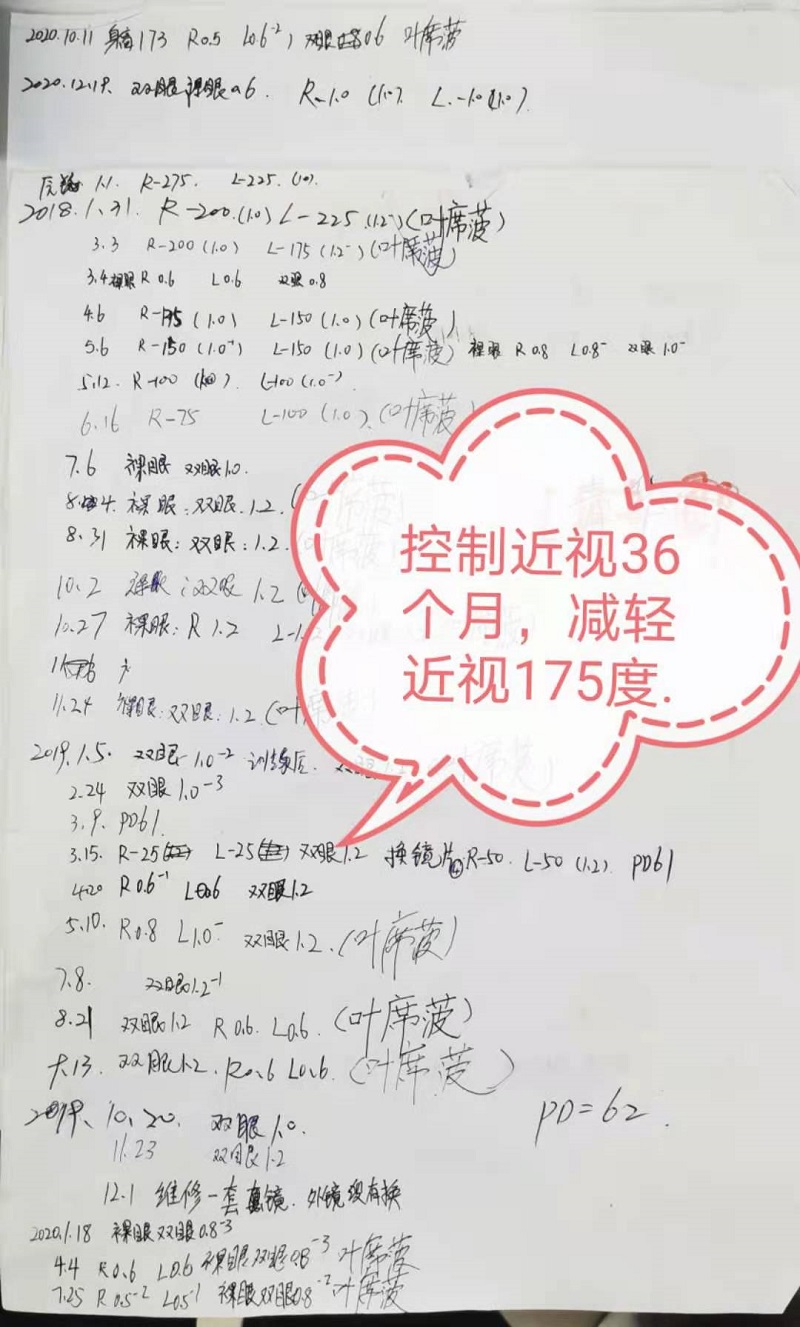 2020.10.11 身高173 R0.5 L0.6⁻² 双眼 0.6 叶席菠
2020.12.19. 双眼裸眼0.6. R-1.0 (1.0). L.-1.0 (1.0).
1.1. R-275. L-225. (1.0).
2018.1.31. R-200.(1.0) L-225.(1.2⁻)(叶席菠)
3.3 R-200(1.0) L-175(1.2⁻)(叶席菠)
3.4裸眼R 0.6 L0.6 双眼0.8
4.6 R-175(1.0) L-150(1.0)(叶席菠)
5.6 R-150(1.0⁻¹) L-150(1.0)(叶席菠) 裸眼 R 0.8 L0.8⁻ 双眼 1.0⁻
5.12. R-100 L-100(1.0⁻).
6.16 R-75 L-100(1.0).(叶席菠)
7.6 裸眼 双眼1.0.
8. 4. 裸眼:双眼.1.2.
8.31 裸眼:双眼:1.2.
10.2 裸眼:双眼 1.2
10.27 裸眼:R 1.2 L-1.2
11.24 裸眼:双眼:1.2.(叶席菠)
2019.1.5. 双眼 1.0⁻² 训练后. 双眼
2.24 双眼1.0⁻³
3.9. PD61.
3.15. R-25 L-25 双眼1.2 换镜片 R-50. L-50 (1.2) PD61
4.20 R0.6⁻¹ L0.6 双眼1.2
5.10. R0.8 L1.0⁻ 双眼1.2.(叶席菠)
7.8. 双眼1.2⁻¹
8.21 双眼1.2 R0.6. L0.6.(叶席菠)
9.13. 双眼1.2. R0.6 L0.6.(叶席菠)
2019.10.20. 双眼1.0. PD=62.
11.23 双眼1.2
12.1 维修一套 镜.外镜没有换
2020.1.18 裸眼双眼0.8⁻³
4.4 R0.6 L0.6 裸眼双眼0.8⁻³ 叶席菠
7.25 R0.5⁻² L0.5⁻¹ 裸眼双眼0.8⁻² 叶席菠
控制近视36
个月，减轻
近视175度.